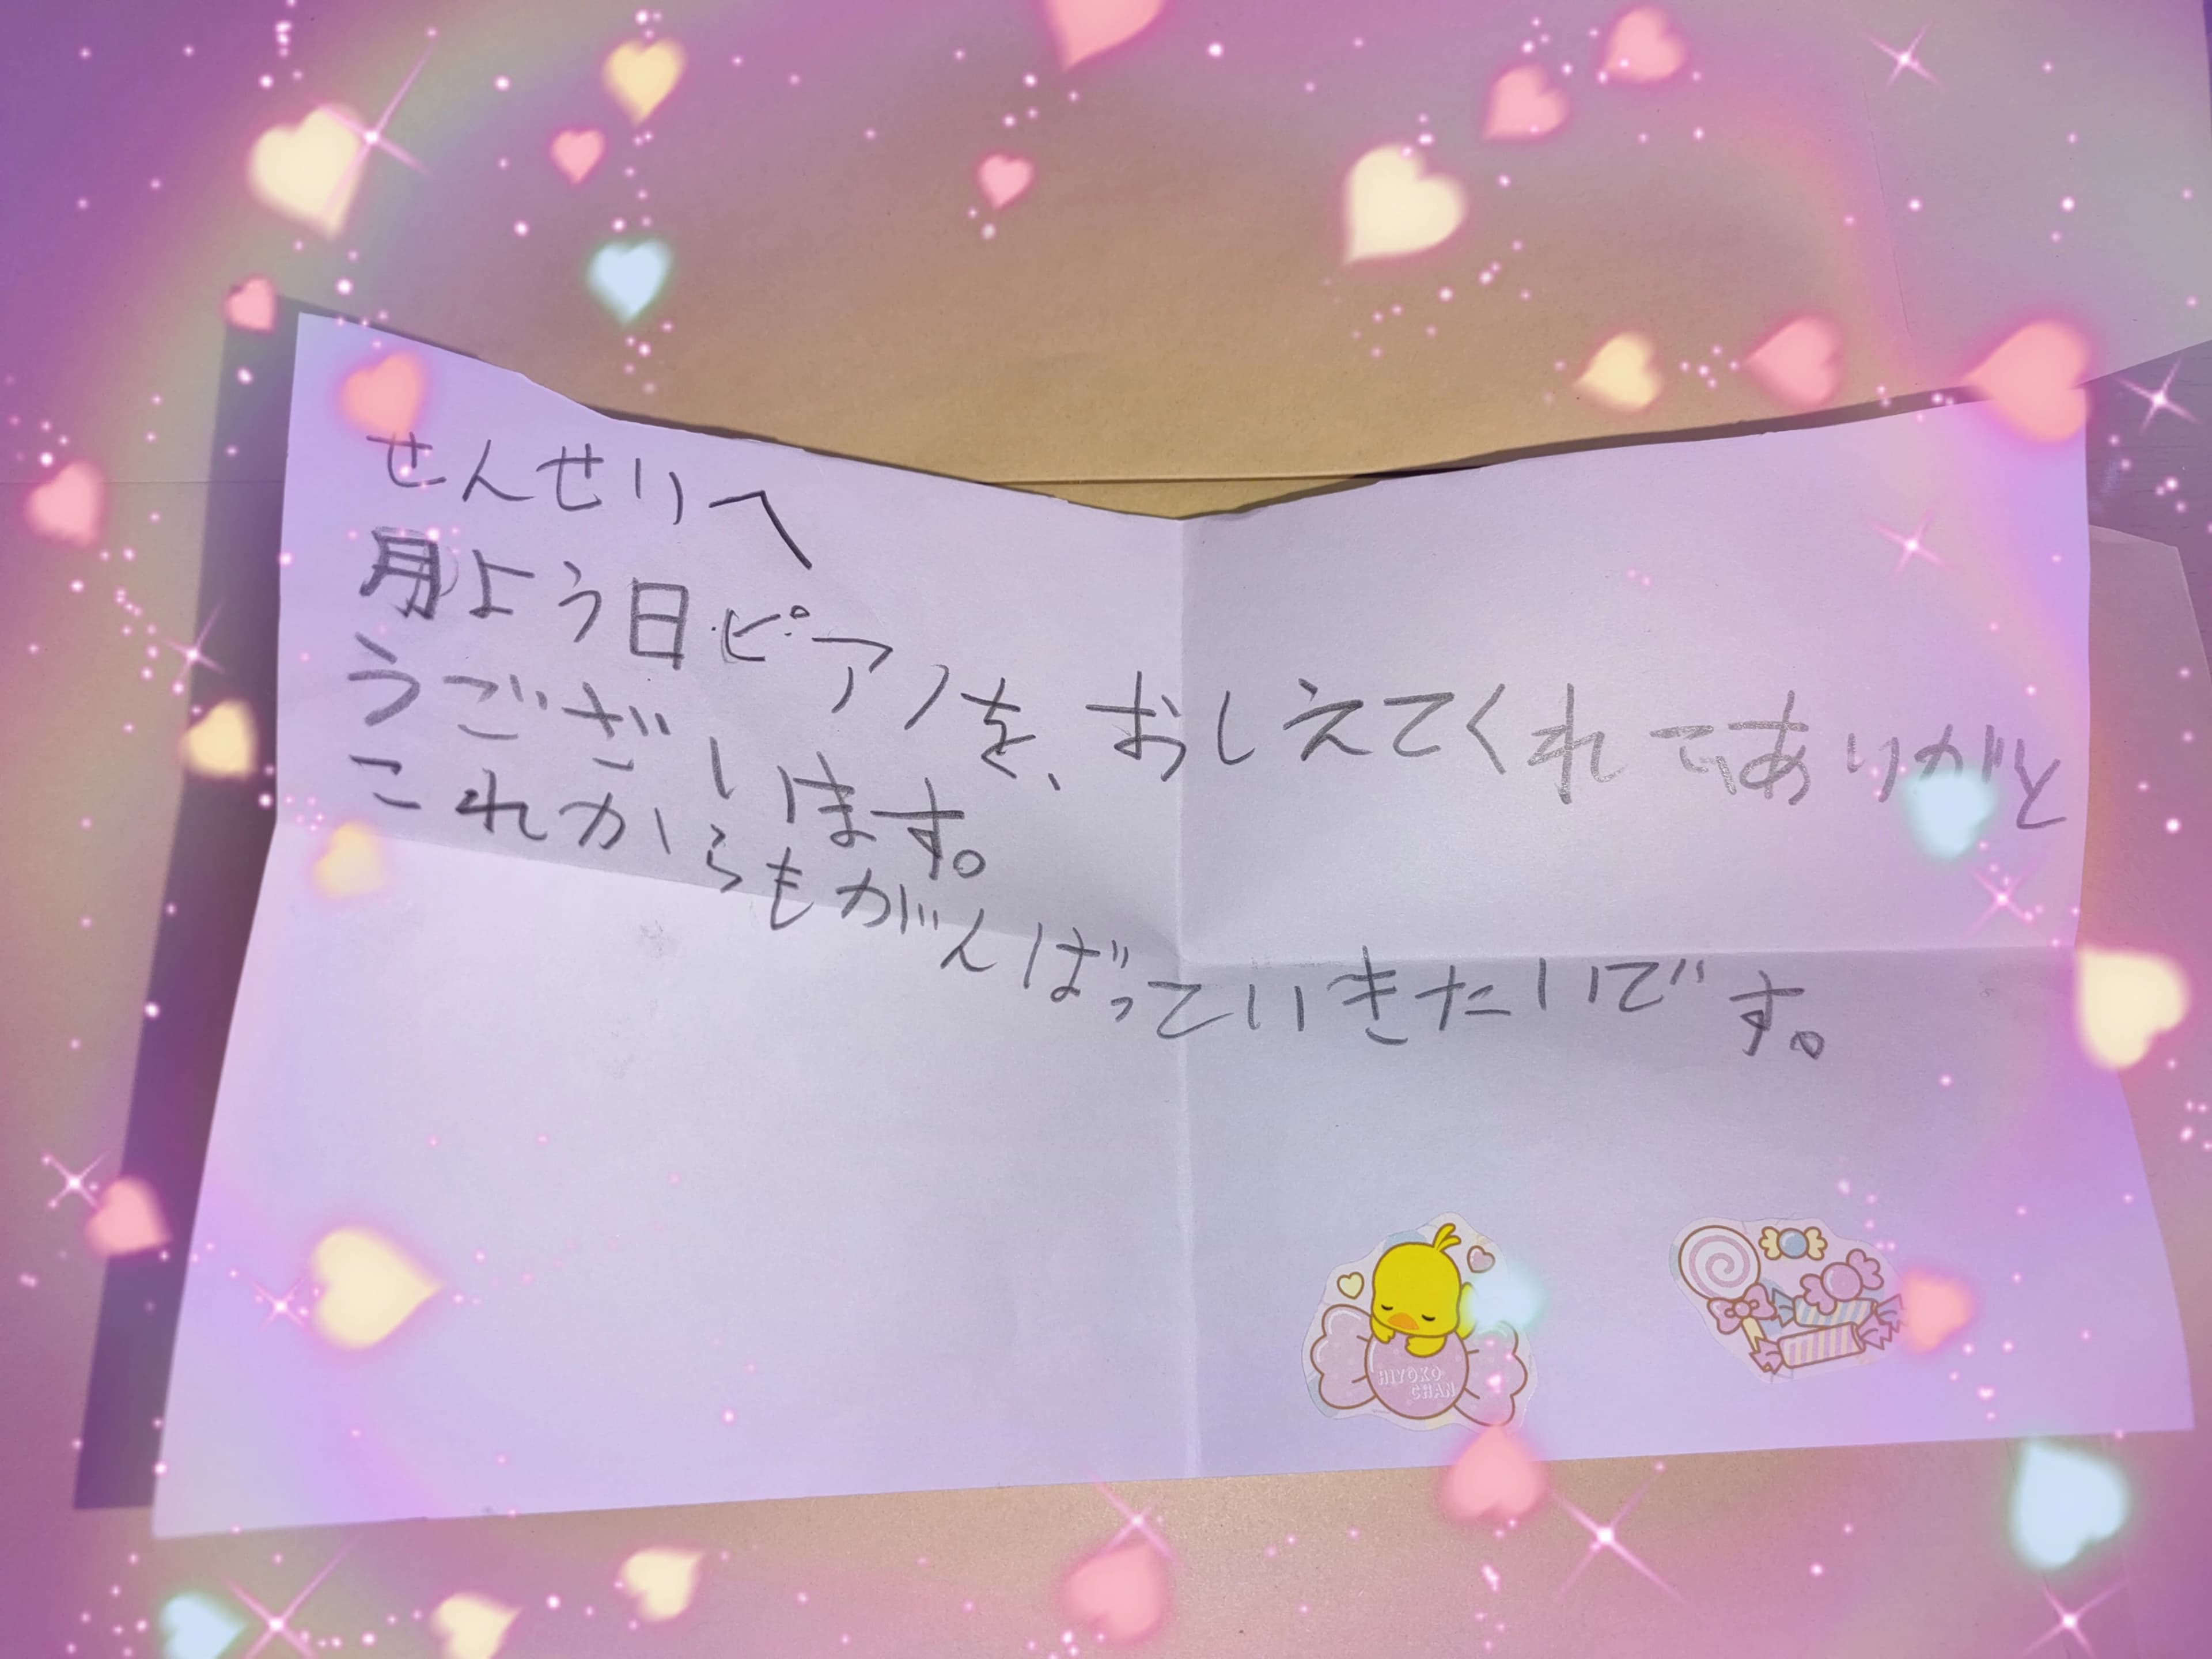 せんせいへ
月よう日ピアノを、おしえてくれてありがと
うございます。
これからもがんばっていきたいです。
HIYOKO
CHAN